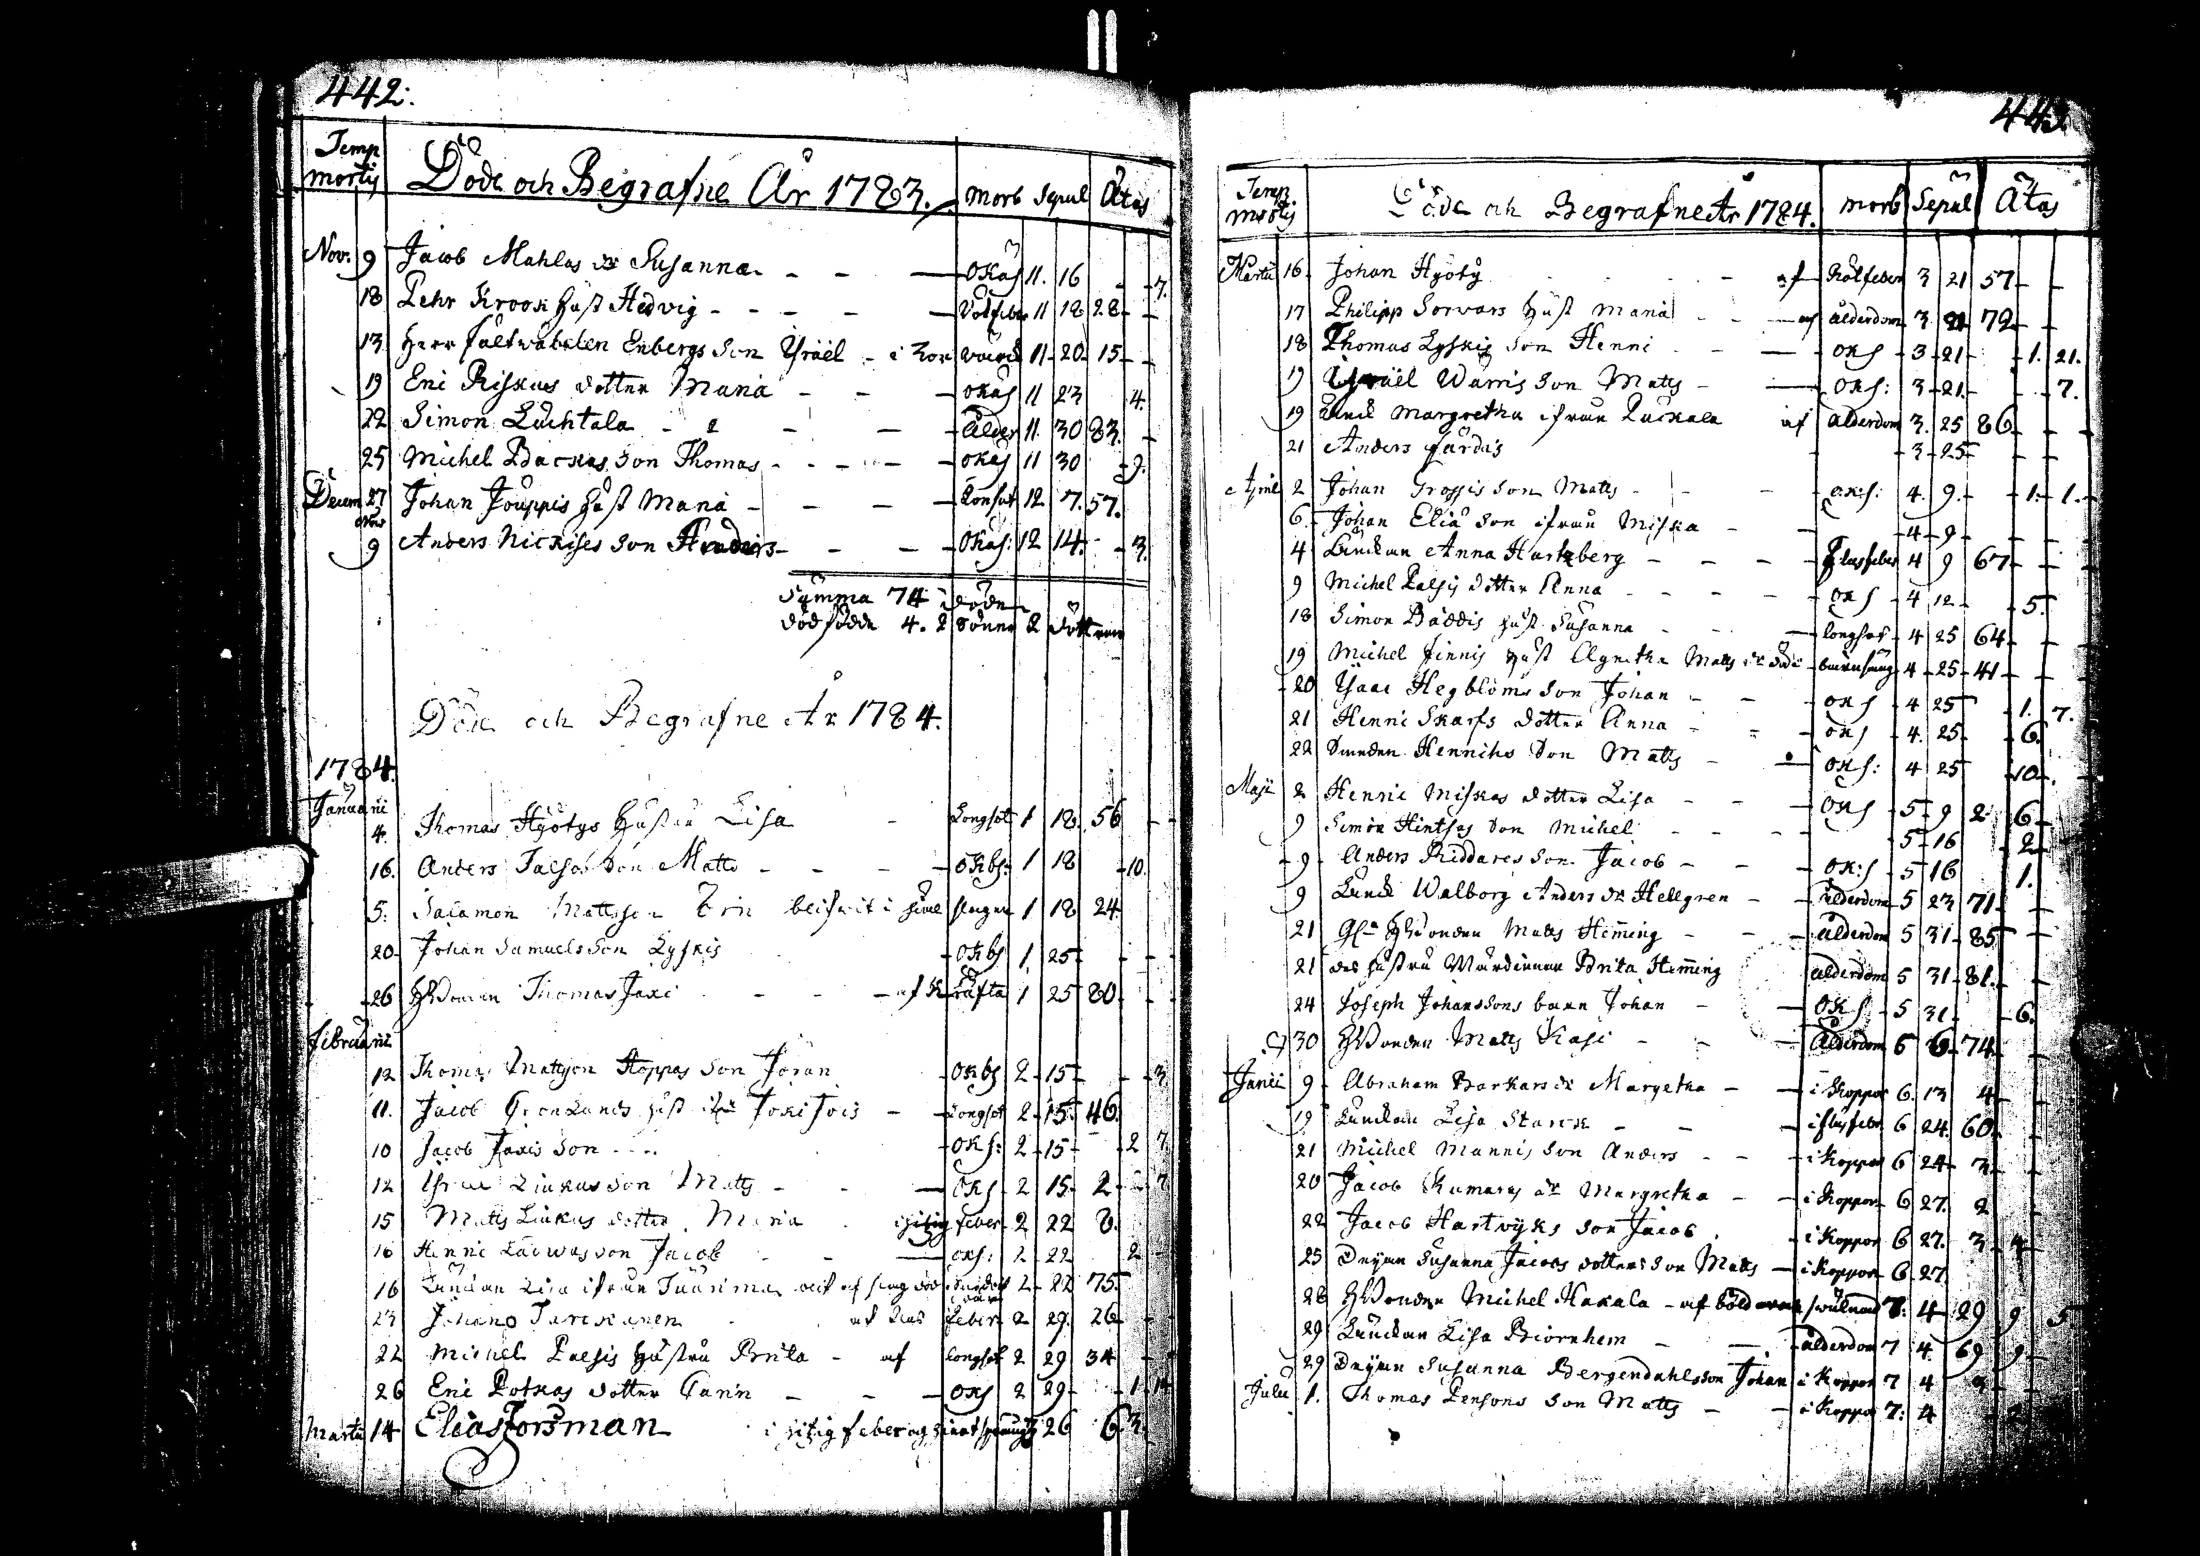 442.
Temp mortis Döde och Begrafne År 1783. morb Sepul Ætas
Nov: 9 Jacob Mahlas dr Susanna - - - okäs 11. 16 - - 7.
18 Pehr Krook Hust Hedvig - - - - - Rötfeber 11 18 28 - -
13 Herr Fältwäbelen Enbergs Son Israël - i 11 - 20 - 15 - -
19 Eric Riskas dotter Maria - - - okäs 11 23 4.
22 Simon Luchtala - - - ålder 11. 30 83. -
25 Michel Backas Son Thomas - - - - okäs 11 30 - 9.
Decem 27 Johan Jouppis Hust Maria - - - - Lonsot 12 7. 57.
Nov 9 Anders Nickises Son Anders - - - okäs: 12 14. - - 3.
Summa 74 döde
dödfödde 4. 2 Söner 2 döttrar
Döde och Begrafne År 1784.
1784.
Januarii
4. Thomas Hyötys Hustru Lisa - Longsot 1 18. 56 - -
16. Anders Son Matts - - - - okbs: 1 18 - 10.
5. Salamon Mattsson i slagen 1 18 24
20. Johan Samuels Son Lyskis - okbs 1 25 - - -
26 Thomas Jaxi - - - af Kräfta 1 25 80 - -
Februarii
12 Thomas Mattson Hoppas Son Jöran - okbs 2 - 15 - - - 3.
11. Jacob Grönlunds Hust - Longsot 2 - 15. 46.
10 Jacob Jaxis Son - - - oks: 2 - 15 - - 2 7.
12 Liukus Son Matts - - - oks 2 15. 2 - - 7
15 Matts Liukus dotter Maria i hitsig feber 2 22 8.
16 Henric Son Jacob - - - oks: 2 22 2 -
16 Enckan Lisa ifrån 2 - 22 75.
23 Johan Tarckanen feber 2 29. 26 - -
22 Michel Palsis Hustru Brita - af Longsot 2 29 34 -
26 Eric Potkas dotter Carin - - - oks 2 29 - - 1 - 14
Martii 14 Elias Forsman i hitsig feber og 26 6 3.
443.
Temp. mortis Döde och Begrafne År 1784. morb Sepul Ætas
Martii 16 Johan Hyöty - af Rötfeber 3 21 57 - -
17 Philipp Sorvars Hust Maria - - af ålderdom 3. 21 72 - -
18 Thomas Lyskis Son Henric - - oks - 3 - 21 - - 1. 21.
19 Israël Warris Son Matts - - oks: - 3 - 21 - - - 7.
19 Margretha ifrån Puckala af ålderdom 3. 25 86 - -
21 Anders - 3 - 25 - -
April 2 Johan Grossis Son Matts - - - oks: 4. 9. - - 1. - 1.
6. Johan Eliä Son ifrån Miska - - - 4 - 9 - - -
4 Enckan Anna Hartzberg - - - - Flusfeber 4 9 67 - -
9 Michel Palsis dotter Anna - - - - oks - 4 12 - - 5.
18 Simon Bäddis Hust Susanna - - longsot - 4 25 64 - -
19 Michel Finnis Hust Agnetha Matts dr dödde barnsäng 4 - 25 - 41 - -
20 Isaac Hegbloms Son Johan - - - oks - 4 25 - 1. 7.
21 Henric Skarfs dotter Anna - - - oks - 4. 25 - 6.
22 Hendrichs Son Matts - - oks: 4 25 - 10 - -
Maji 2 Henric Miskas dotter Lisa - - - oks - 5 - 9 2 - 6 -
9 Simon Hintsas Son Michel - - - - 5 - 16 - 2 -
9 Anders Riddares Son Jacob - - - ok:s - 5 16 1.
9 Enck Walborg Anders dr Hellgren - - ålderdom - 5 23 71 - -
21 Matts Heming - - - ålderdom 5 31 - 85 - -
21 des hustru Wärdinnan Brita Heming ålderdom 5 31 - 81. - -
24 Joseph Johanssons barn Johan - - oks - 5 31 - - 6.
30 Matts Kasi - - - ålderdom 6 6 - 74 -
Junii 9 Abraham Barkars dr Margetha - - i Koppor 6. 13 4 -
19 Enckan Lisa Starck - - - i flusfeber 6 24. 60. -
21 Michel Mannis Son Anders - - - i Koppor 6 24 - 3 -
20 Jacob Kumaras dr Margretha - - i Koppor 6 27. 2 -
22 Jacob Hartvyks Son Jacob - i Koppor 6 27. 3 - 4 -
25 Susanna Jacobs dotters Son Matts - i Koppor 6 - 27
28 Michel Hakala - af 7. 4 - 29 9 5.
29 Enckan Lisa Biörnhem - - - ålderdom 7 4. 69 9 -
29 Susanna Bergendahls Son Johan i Koppor 7 4 3 - -
Julii 1. Thomas Pensons Son Matts - - i Koppor 7: 4